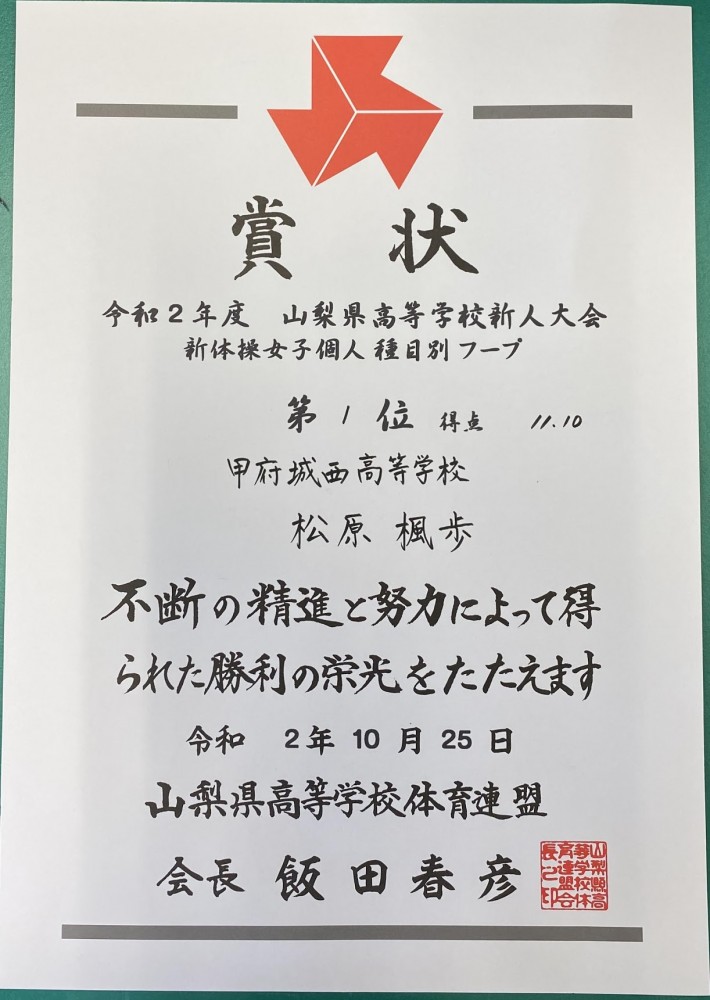 賞 状
令和2年度 山梨県高等学校新人大会
新体操女子個人 種目別 フープ
第 1 位 得点 11.10
甲府城西高等学校
松原 楓歩
不断の精進と努力によって得
られた勝利の栄光をたたえます
令和 2年 10月 25日
山梨県高等学校体育連盟
会長 飯田春彦
山梨縣高
等学校体
育連盟会
長之印